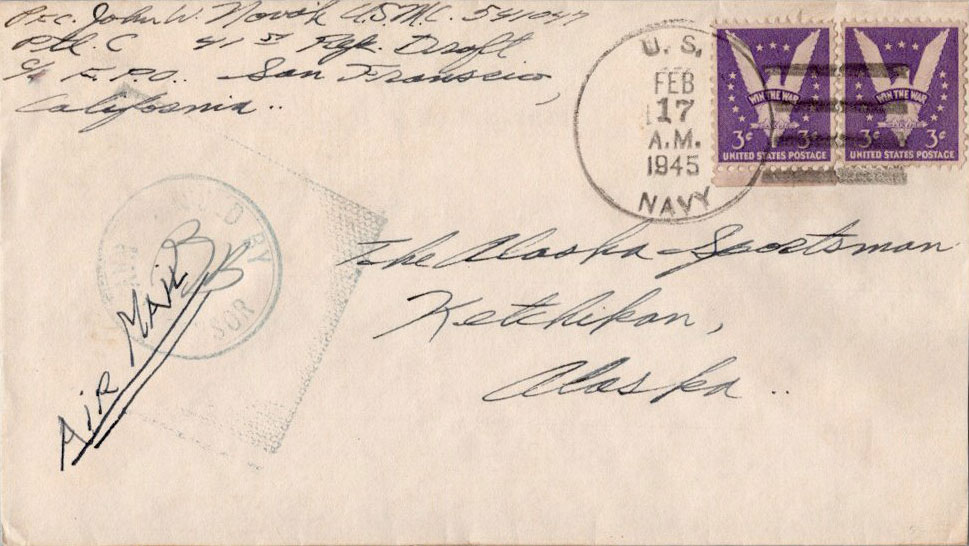 Pfc. John W. Novak U.S.M.C. 541047
Plt. C 41st Rgt. Draft
c/o F.P.O. San Franscio,
California..
U.S.
FEB
17
A.M.
1945
NAVY
WIN THE WAR
3¢ 3¢
UNITED STATES POSTAGE
WIN THE WAR
3¢ 3¢
UNITED STATES POSTAGE
The Alaska Sportsman
Ketchikan,
Alaska..
AIR MAIL
BY